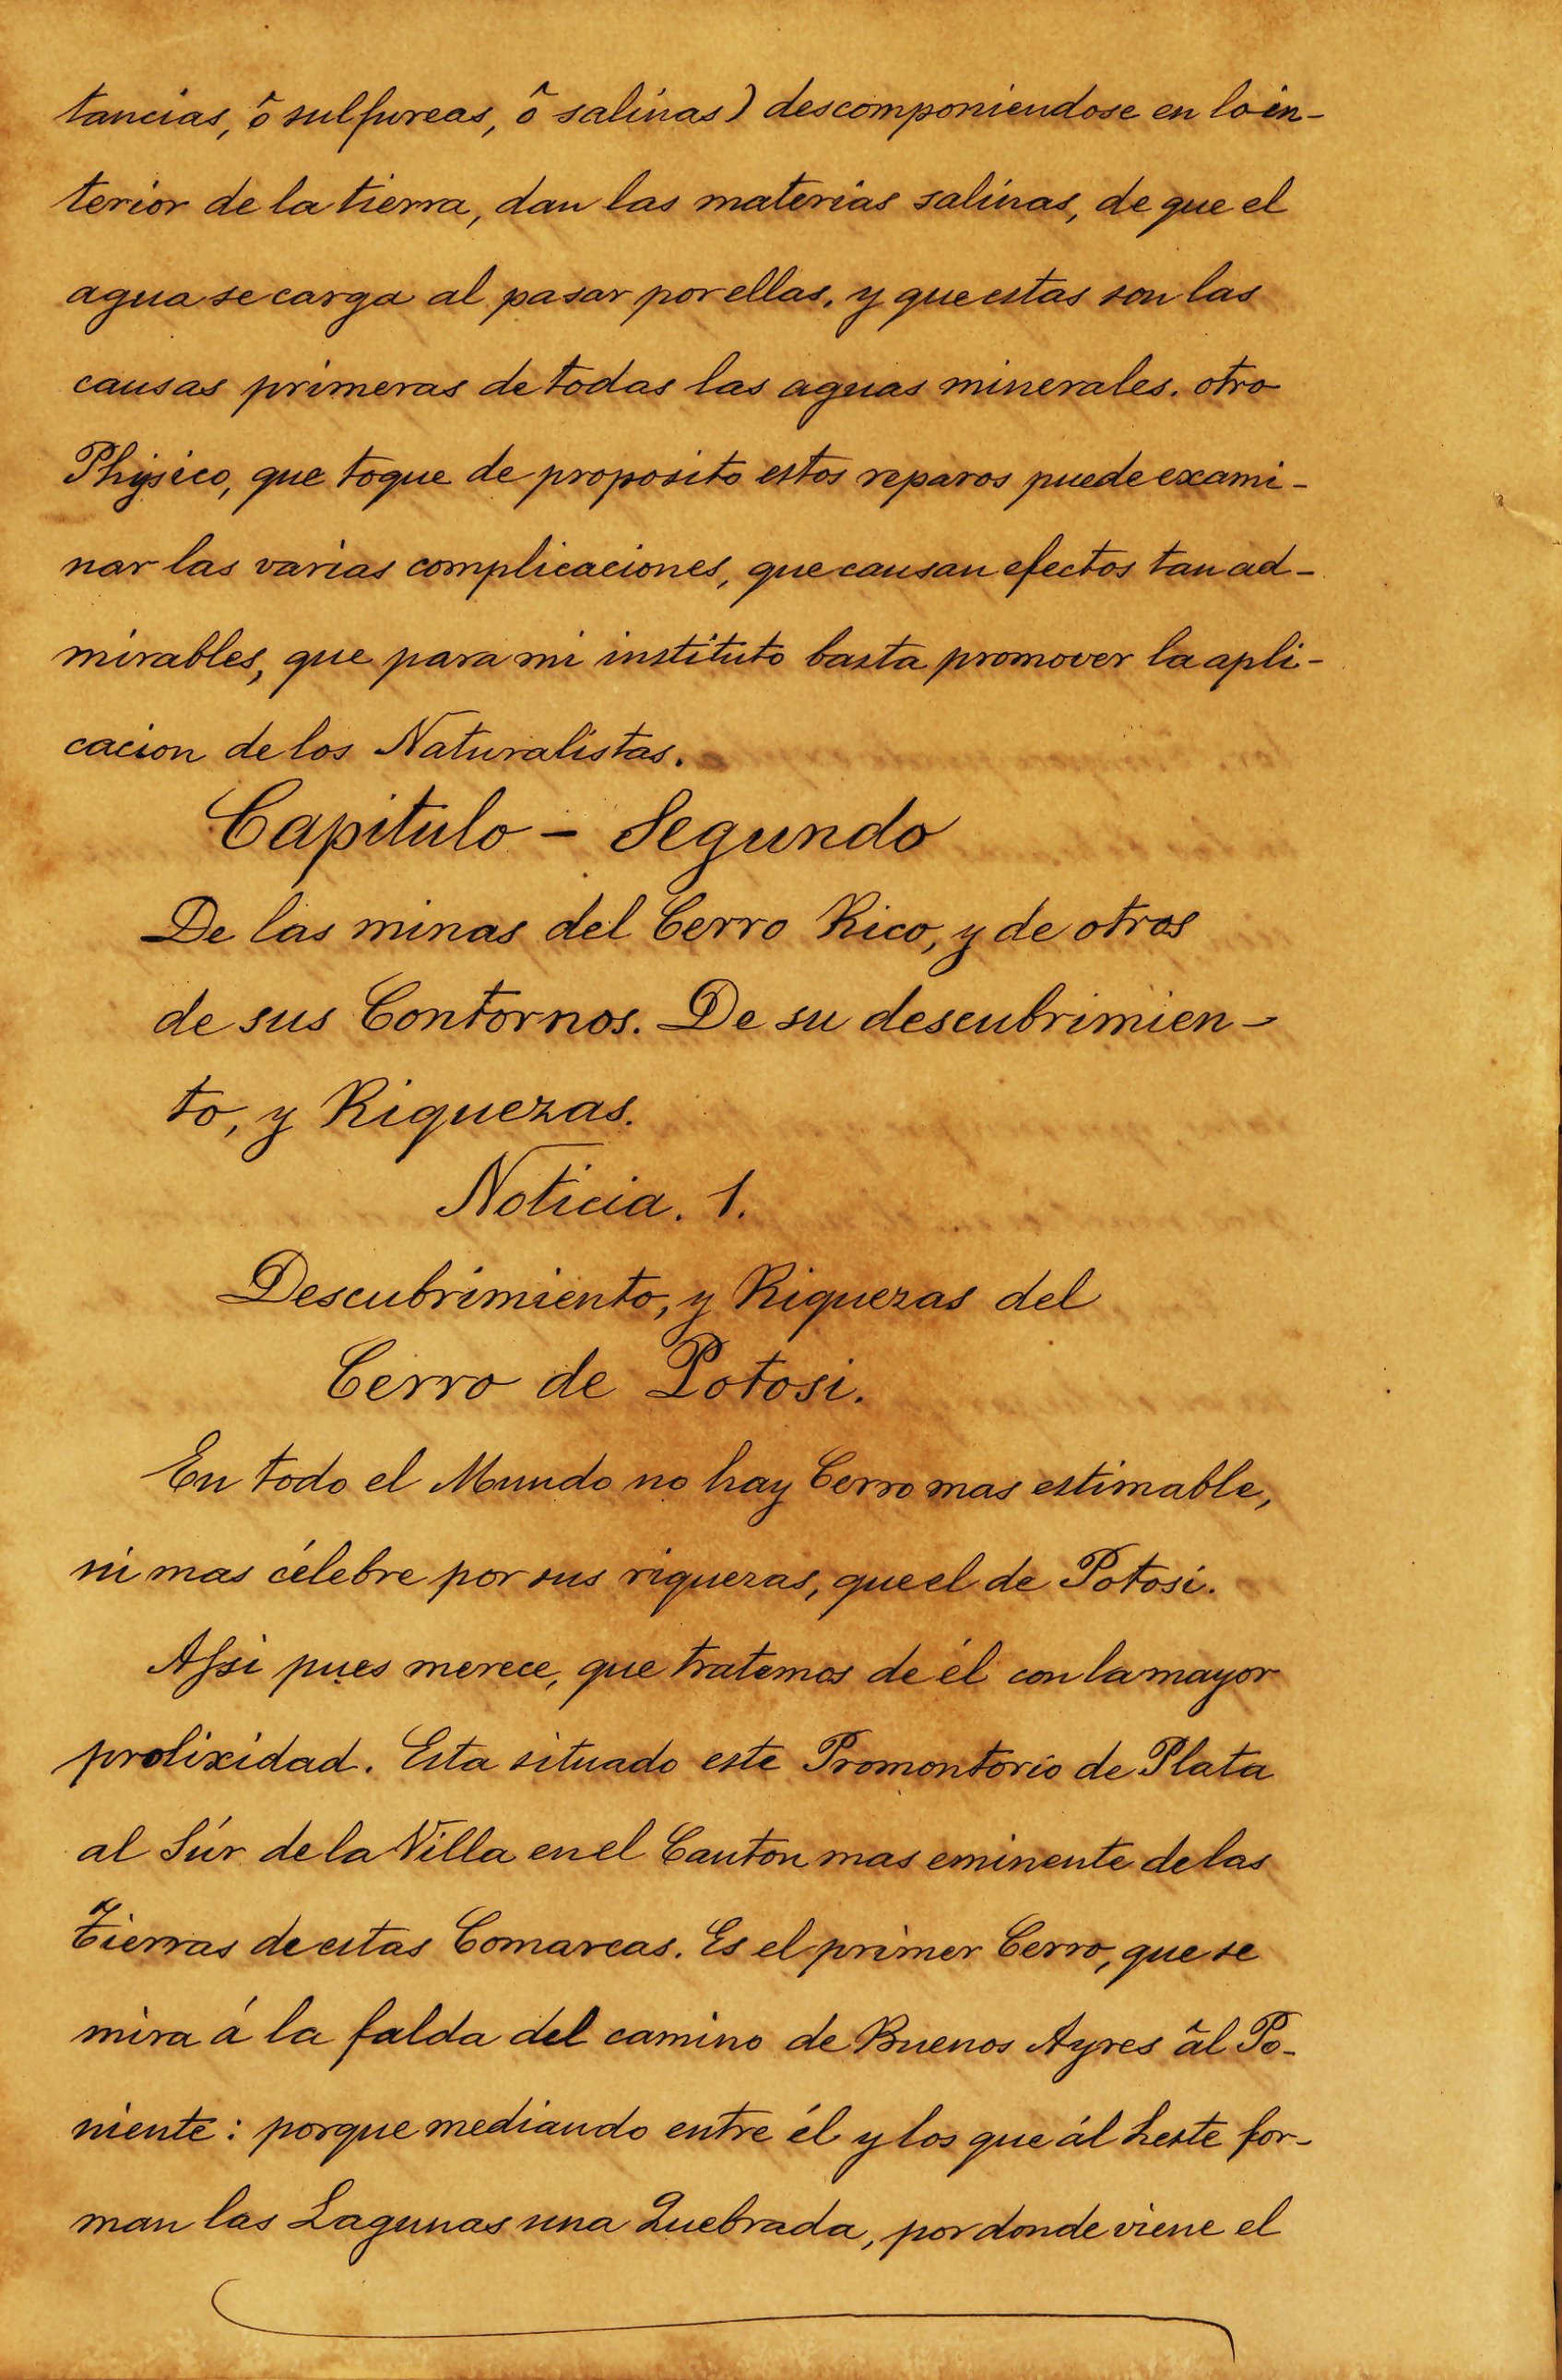 tancias, ô sulfureas, ô salinas) descomponiendose en lo in-
terior de la tierra, dan las materias salinas, de que el
agua se carga al pasar por ellas, y que estas son las
causas primeras de todas las aguas minerales. otro
Physico, que toque de proposito estos reparos puede exami-
nar las varias complicaciones, que causan efectos tan ad-
mirables, que para mi instituto basta promover la apli-
cacion de los Naturalistas.
Capitulo - Segundo
De las minas del Cerro Rico, y de otros
de sus Contornos. De su descubrimien-
to, y Riquezas.
Noticia. 1.
Descubrimiento, y Riquezas del
Cerro de Potosi.
En todo el Mundo no hay Cerro mas estimable,
ni mas célebre por sus riquezas, que el de Potosi.
Assi pues merece, que tratemos de él con la mayor
prolixidad. Esta situado este Promontorio de Plata
al Súr de la Villa en el Canton mas eminente de las
Tierras de estas Comarcas. Es el primer Cerro, que se
mira á la falda del camino de Buenos Ayres âl Po-
niente: porque mediando entre él y los que ál Leste for-
man las Lagunas una Quebrada, por donde viene el